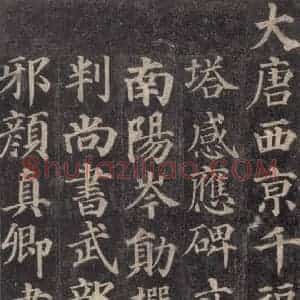 大唐西京千福
塔感應碑文
南陽岑勛撰
判尚書武部
邪顏真卿書
Shufaziliao.COM